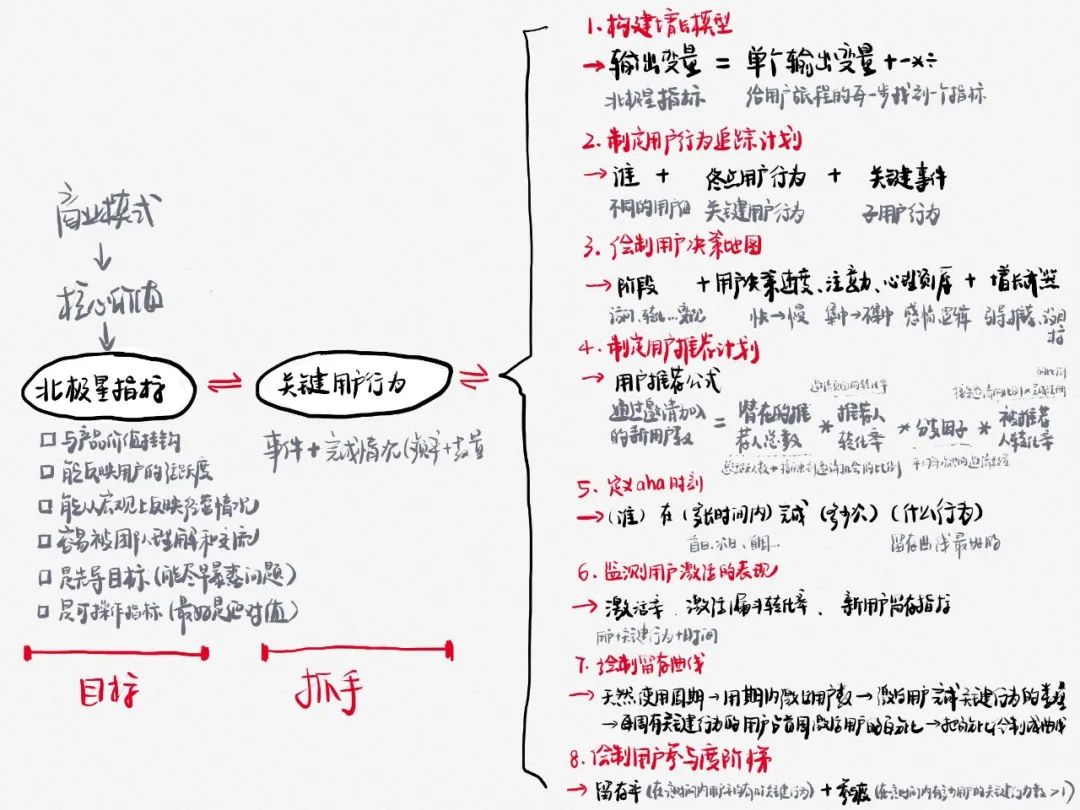 商业模式
核心价值
北极星指标
与产品价值挂钩
能反映用户的活跃度
能从宏观上反映经营情况
容易被团队理解和交流
是先导目标(能尽早暴露问题)
是可操作指标(最好是绝对值)
目标
关键用户行为
事件+完成情况(频率+数量
抓手
1. 构建增长模型
→输出变量 = 单个输出变量+-×÷
北极星指标 给用户旅程的每一步找到一个指标
2. 制定用户行为追踪计划
→谁 + 终点用户行为 + 关键事件
不同的用户组 关键用户行为 子用户行为
3. 绘制用户决策地图
→阶段 +用户决策速度、注意力、心理顺序 + 增长武器
访问、转化… 快→慢 集中→不集中 感情 逻辑
4. 制定用户推荐计划
→用户推荐公式
通过邀请加入的新用户数 = 潜在的推荐人总数 * 推荐人转化率 * 分支因子 * 被推荐人转化率
5. 定义aha时刻
→(谁)在(多长时间内)完成(多少次)(什么行为)
首日、次日、首周… 留存曲线最好的
6. 监测用户激活的表现
→激活率、激活漏斗转化率、新用户留存指标
用户+关键行为+时间
7. 绘制留存曲线
→天然使用周期→周期内激活用户数→激活用户完成关键行为的数量
→每周有关键行为的用户占首周激活用户的百分比→把百分比绘制成曲线
8. 绘制用户参与度阶梯
→留存率(在 时间内用户 有 关键行为) + 参与度(在 时间内 用户的关键行为数>1)